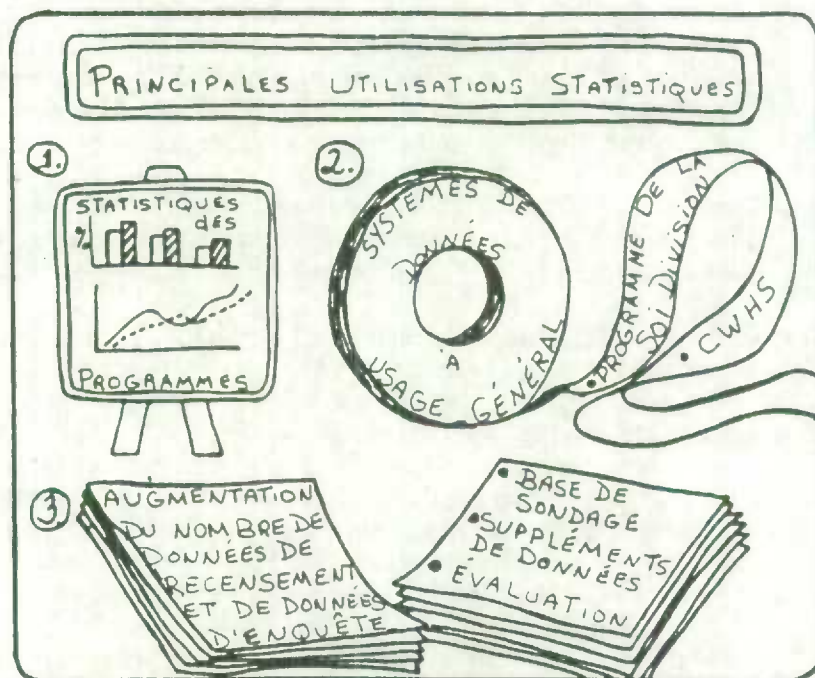 PRINCIPALES UTILISATIONS STATISTIQUES
1.
STATISTIQUES
DES
%
PROGRAMMES
2.
SYSTÈMES DE
DONNÉES
À
USAGE GÉNÉRAL
• PROGRAMME DE LA
SOI DIVISION
• CWHS
3
AUGMENTATION
DU NOMBRE DE
DONNÉES DE
RECENSEMENT
ET DE DONNÉES
D'ENQUÊTE
• BASE DE
SONDAGE
• SUPPLÉMENTS
DE DONNÉES
• ÉVALUATION